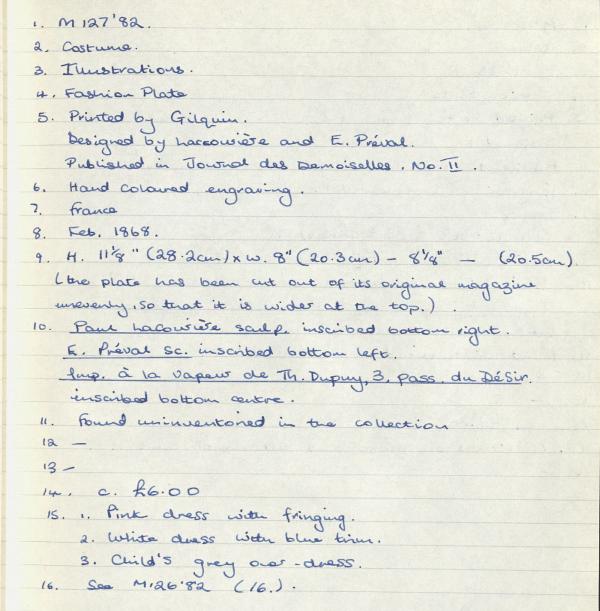 1. M127'82.
2. Costume.
3. Illustrations.
4. Fashion Plate
5. Printed by Gilquin.
Designed by Lacourière and E. Préval.
Published in Journal des Demoiselles. No. II.
6. Hand coloured engraving.
7. France
8. Feb. 1868.
9. H. 11⅛" (28.2cm) x w. 8" (20.3cm) - 8⅛" - (20.5cm)
(the plate has been cut out of its original magazine
unevenly, so that it is wider at the top.).
10. Paul Lacourière sculp. inscribed bottom right.
E. Préval sc. inscribed bottom left.
Imp. à la vapeur de Th. Dupuy, 3, pass. du Désir.
inscribed bottom centre.
11. Found uninventoried in the collection
12 —
13 —
14. c. £6.00
15. 1. Pink dress with fringing.
2. White dress with blue trim.
3. Child's grey over-dress.
16. See M126'82 (16.).